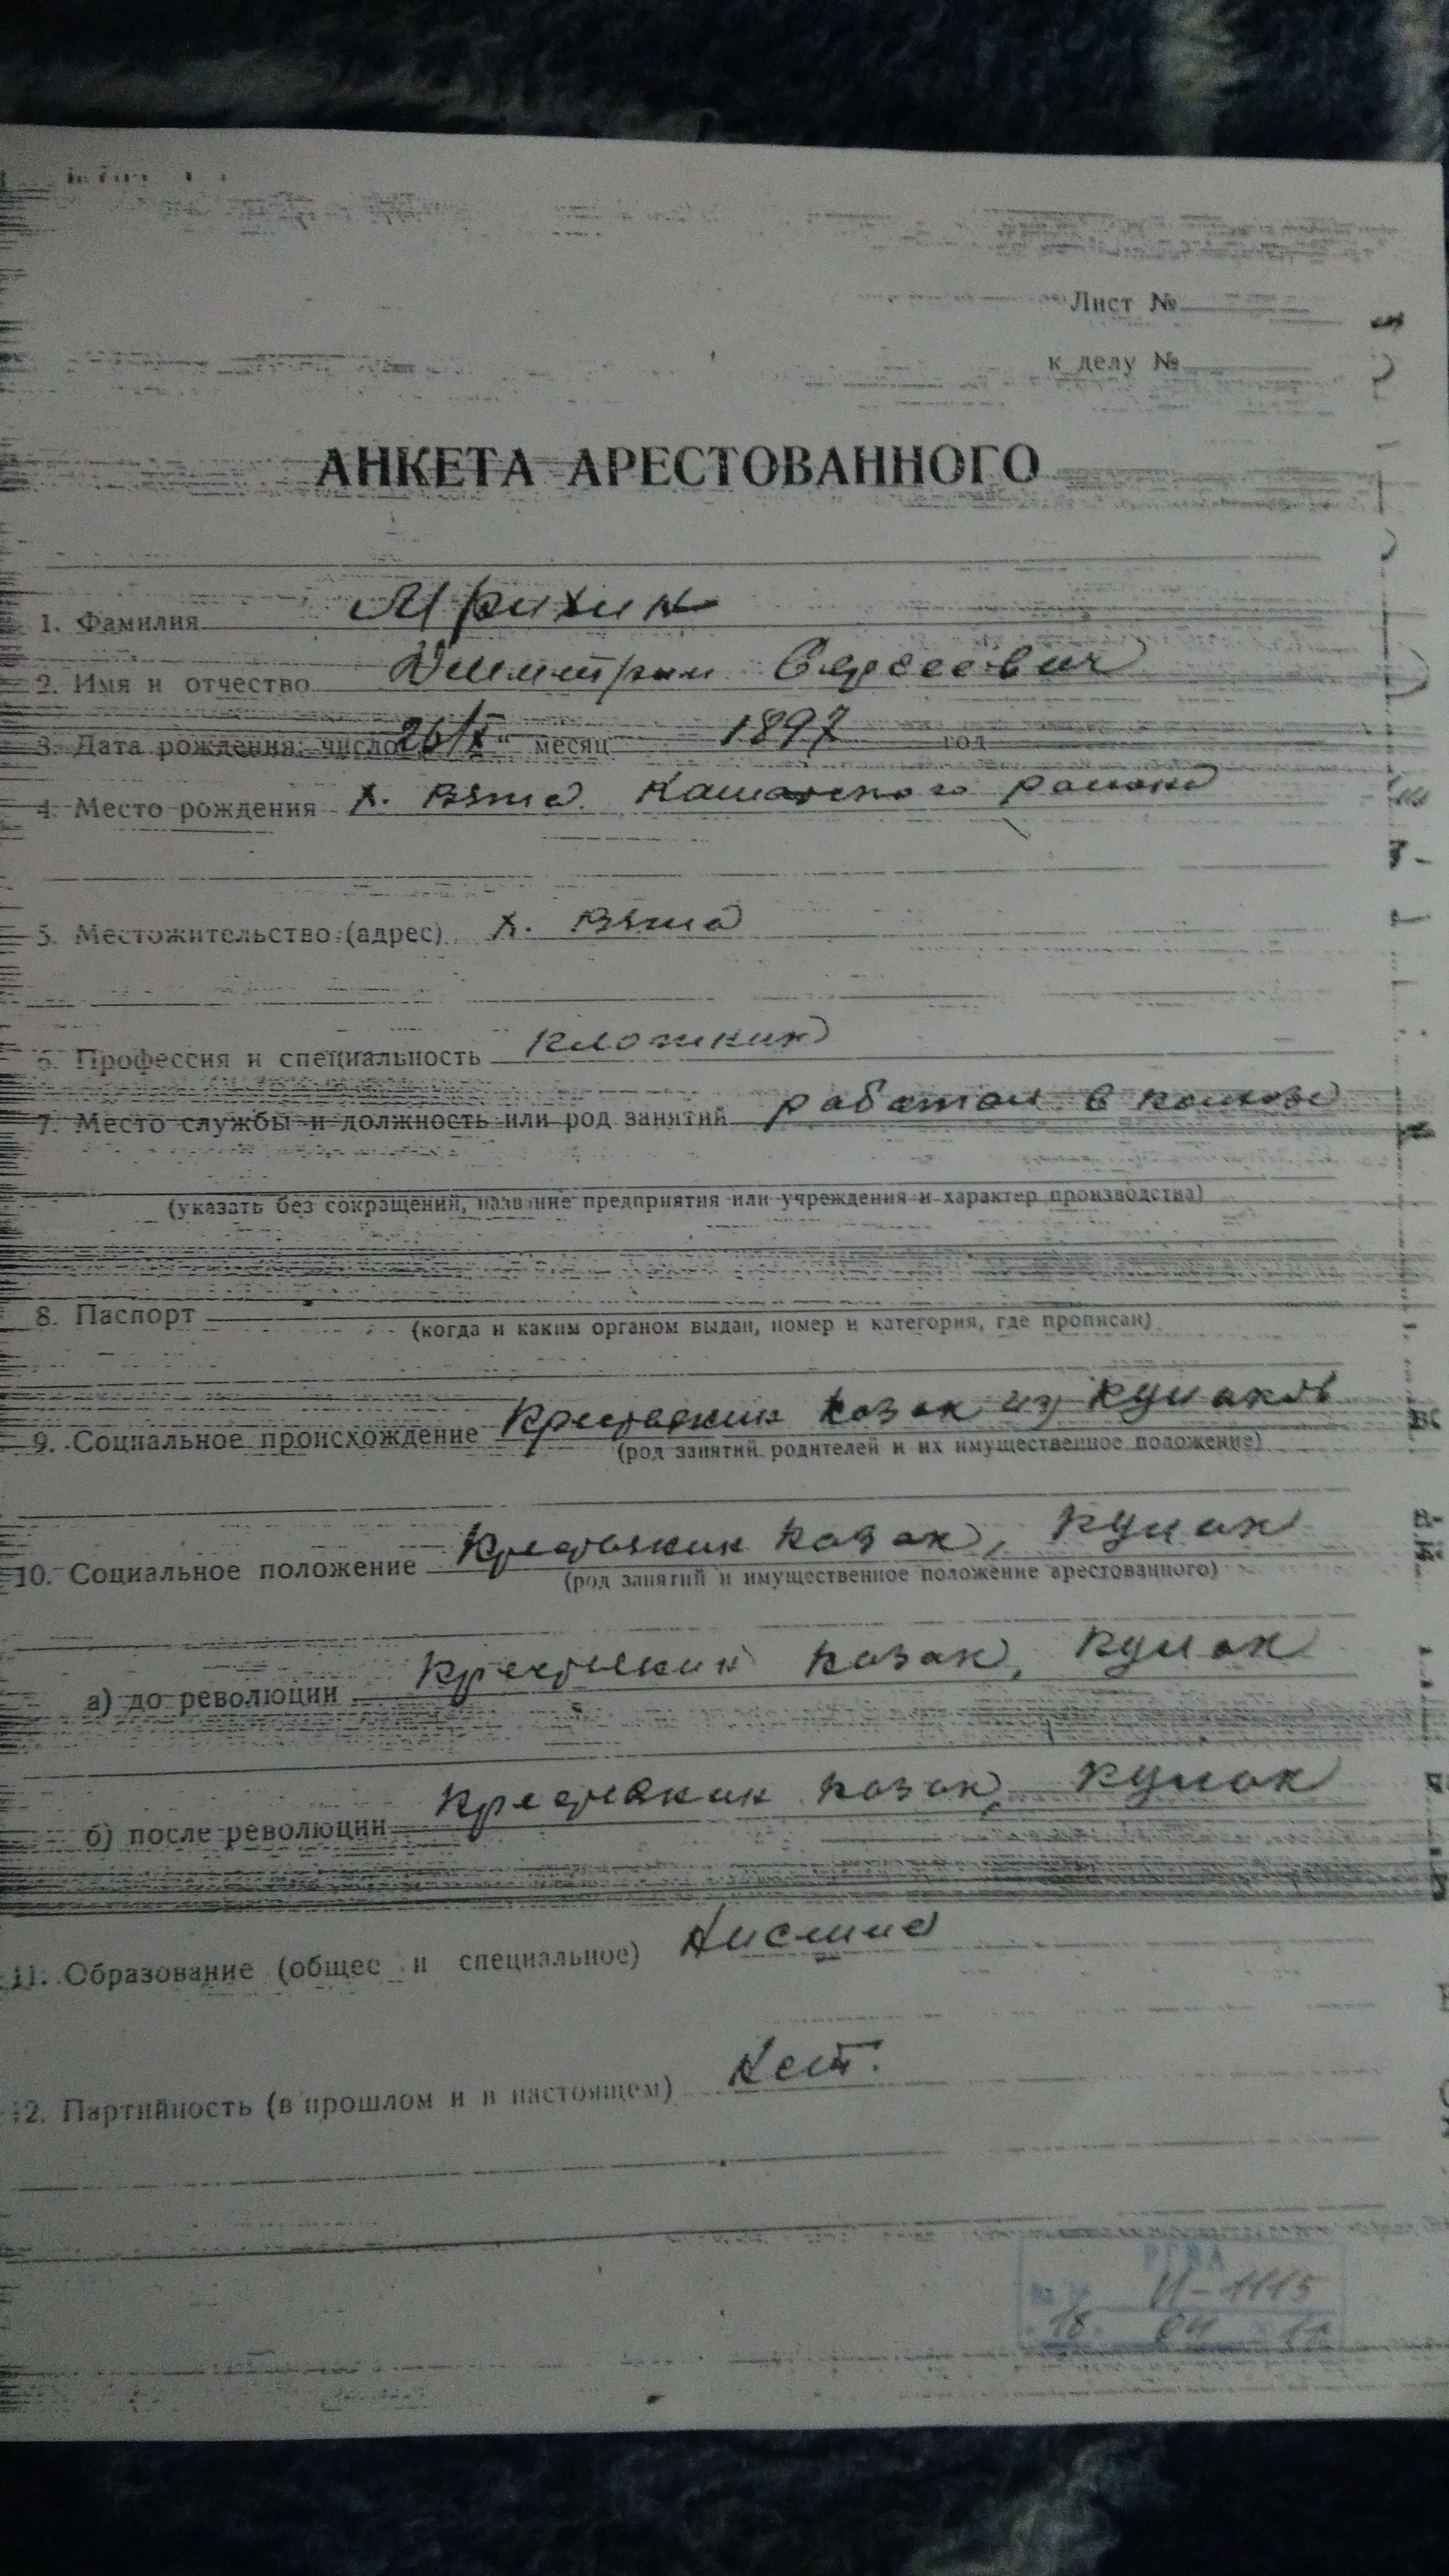 Лист №
к делу №
АНКЕТА АРЕСТОВАННОГО
1. Фамилия Мрихин
2. Имя и отчество Дмитрий Сергеевич
3. Дата рождения: число 26/X " месяц 1897 год
4. Место рождения х. Вяжа Кашарского района
5. Местожительство (адрес) х. Вяжа
6. Профессия и специальность плотник
7. Место службы и должность или род занятий работал в колхозе
(указать без сокращений, название предприятия или учреждения и характер производства)
8. Паспорт
(когда и каким органом выдан, номер и категория, где прописан)
9. Социальное происхождение Крестьянин казак из кулаков
(род занятий родителей и их имущественное положение)
10. Социальное положение Крестьянин казак, кулак
(род занятий и имущественное положение арестованного)
а) до революции Крестьянин казак, кулак
б) после революции Крестьянин казак, кулак
11. Образование (общее и специальное) Низшее
12. Партийность (в прошлом и в настоящем) Нет.
П-1115
18 04